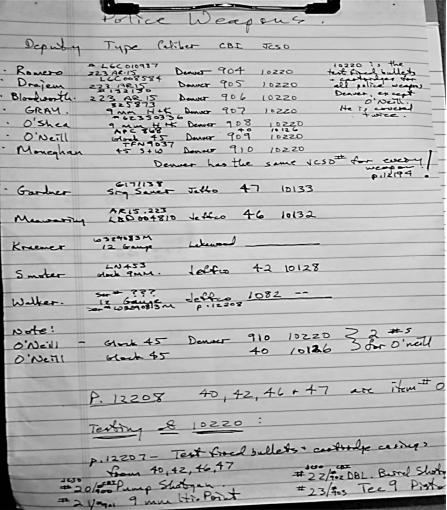 Police Weapons.
Deputy Type Caliber CBI JCSO
Romero # LGC010987 223 AR-15 Denver 904 10220
10220 is the
test fired bullets
+ cartridges for
all police weapons
Denver. except
O'Neill.
He is covered
twice.
Drajem LGC008584 223 AR15 Denver 905 10220
Bloodworth 223 AR-15 Denver 906 10220
GRAM 9 mm H+K Denver 907 10220
O'Shea 9 H+K Denver 908 10220
O'Neill Glock 45 Denver 909 10220
40 10126
Moneghan TFN9037 45 S+W Denver 910 10220
Denver has the same JCSO # for every
weapon
p.12194!
Gardner Sig Sauer Jeffco 47 10133
AR15 .223
LBD004810 Jeffco 46 10132
Kraemer W329083M 12 Gauge Lakewood
Smoker LN453 Glock 9MM. Jeffco 42 10128
Walker. Ser # ??? 12 Gauge Jeffco 1082 --
Ser # W329083M p.12208
Note:
O'Neill - Glock 45 Denver 910 10220 } 2 #s
O'Neill Glock 45 40 10126 } for O'neill
P. 12208 40, 42, 46 + 47 are item # 0
Testing of 10220:
p.12207 - Test fired bullets + cartridge casings
from 40, 42, 46, 47
JCSO CBI
#20/ Pump Shotgun #22/902 DBL. Barrel Shotg
#21/901 9 mm Hi Point #23/903 Tec 9 Pist